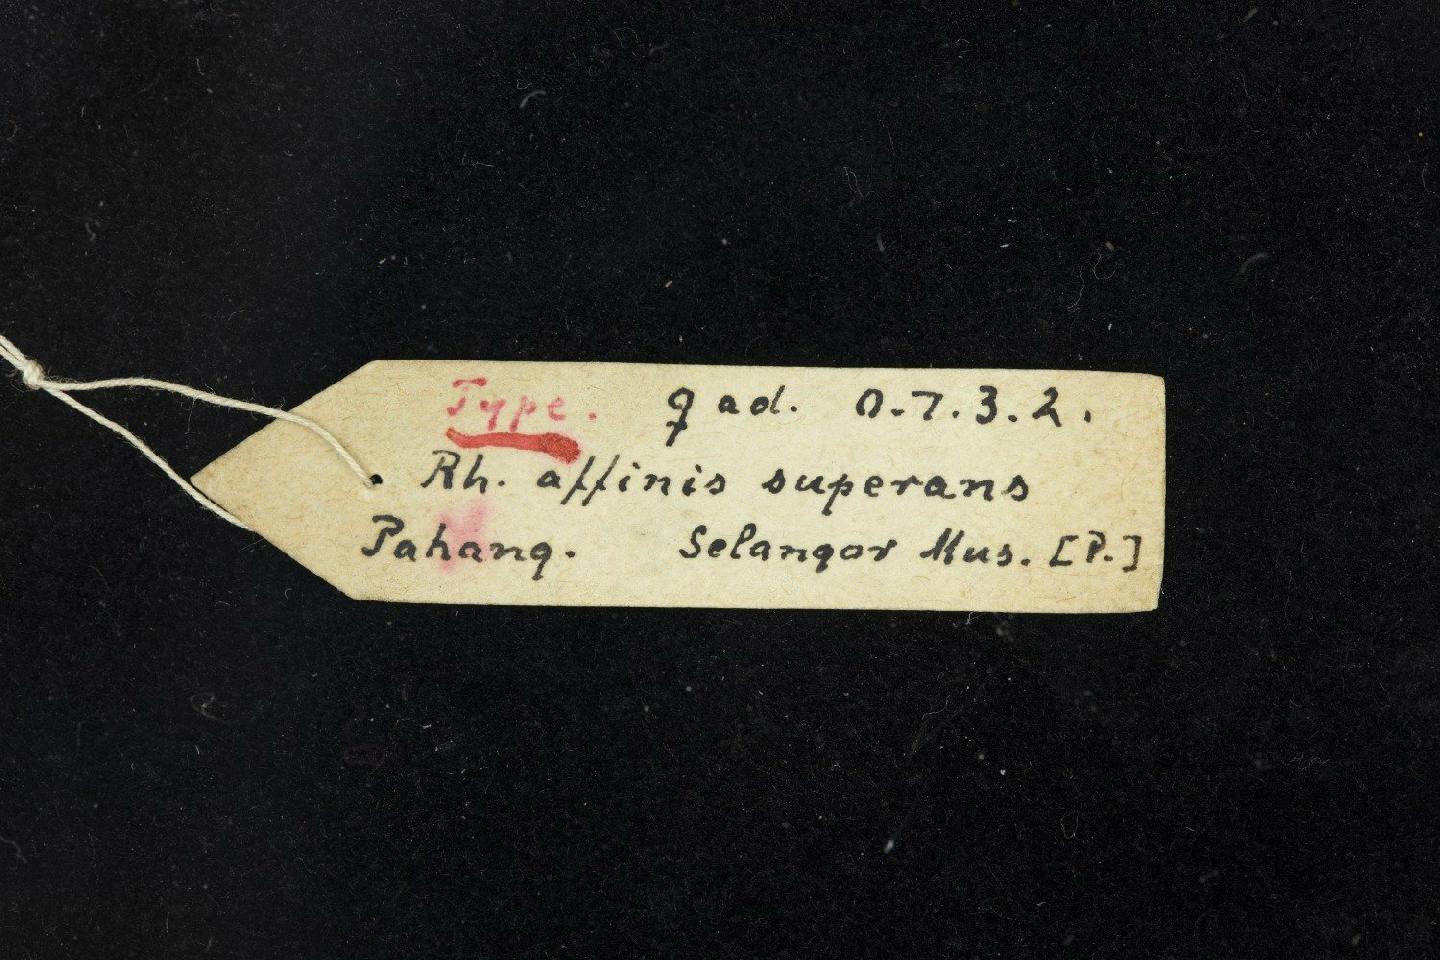 Type. ♀ ad. 0.7.3.2.
Rh. affinis superans
Pahang. Selangor Mus. [P.]